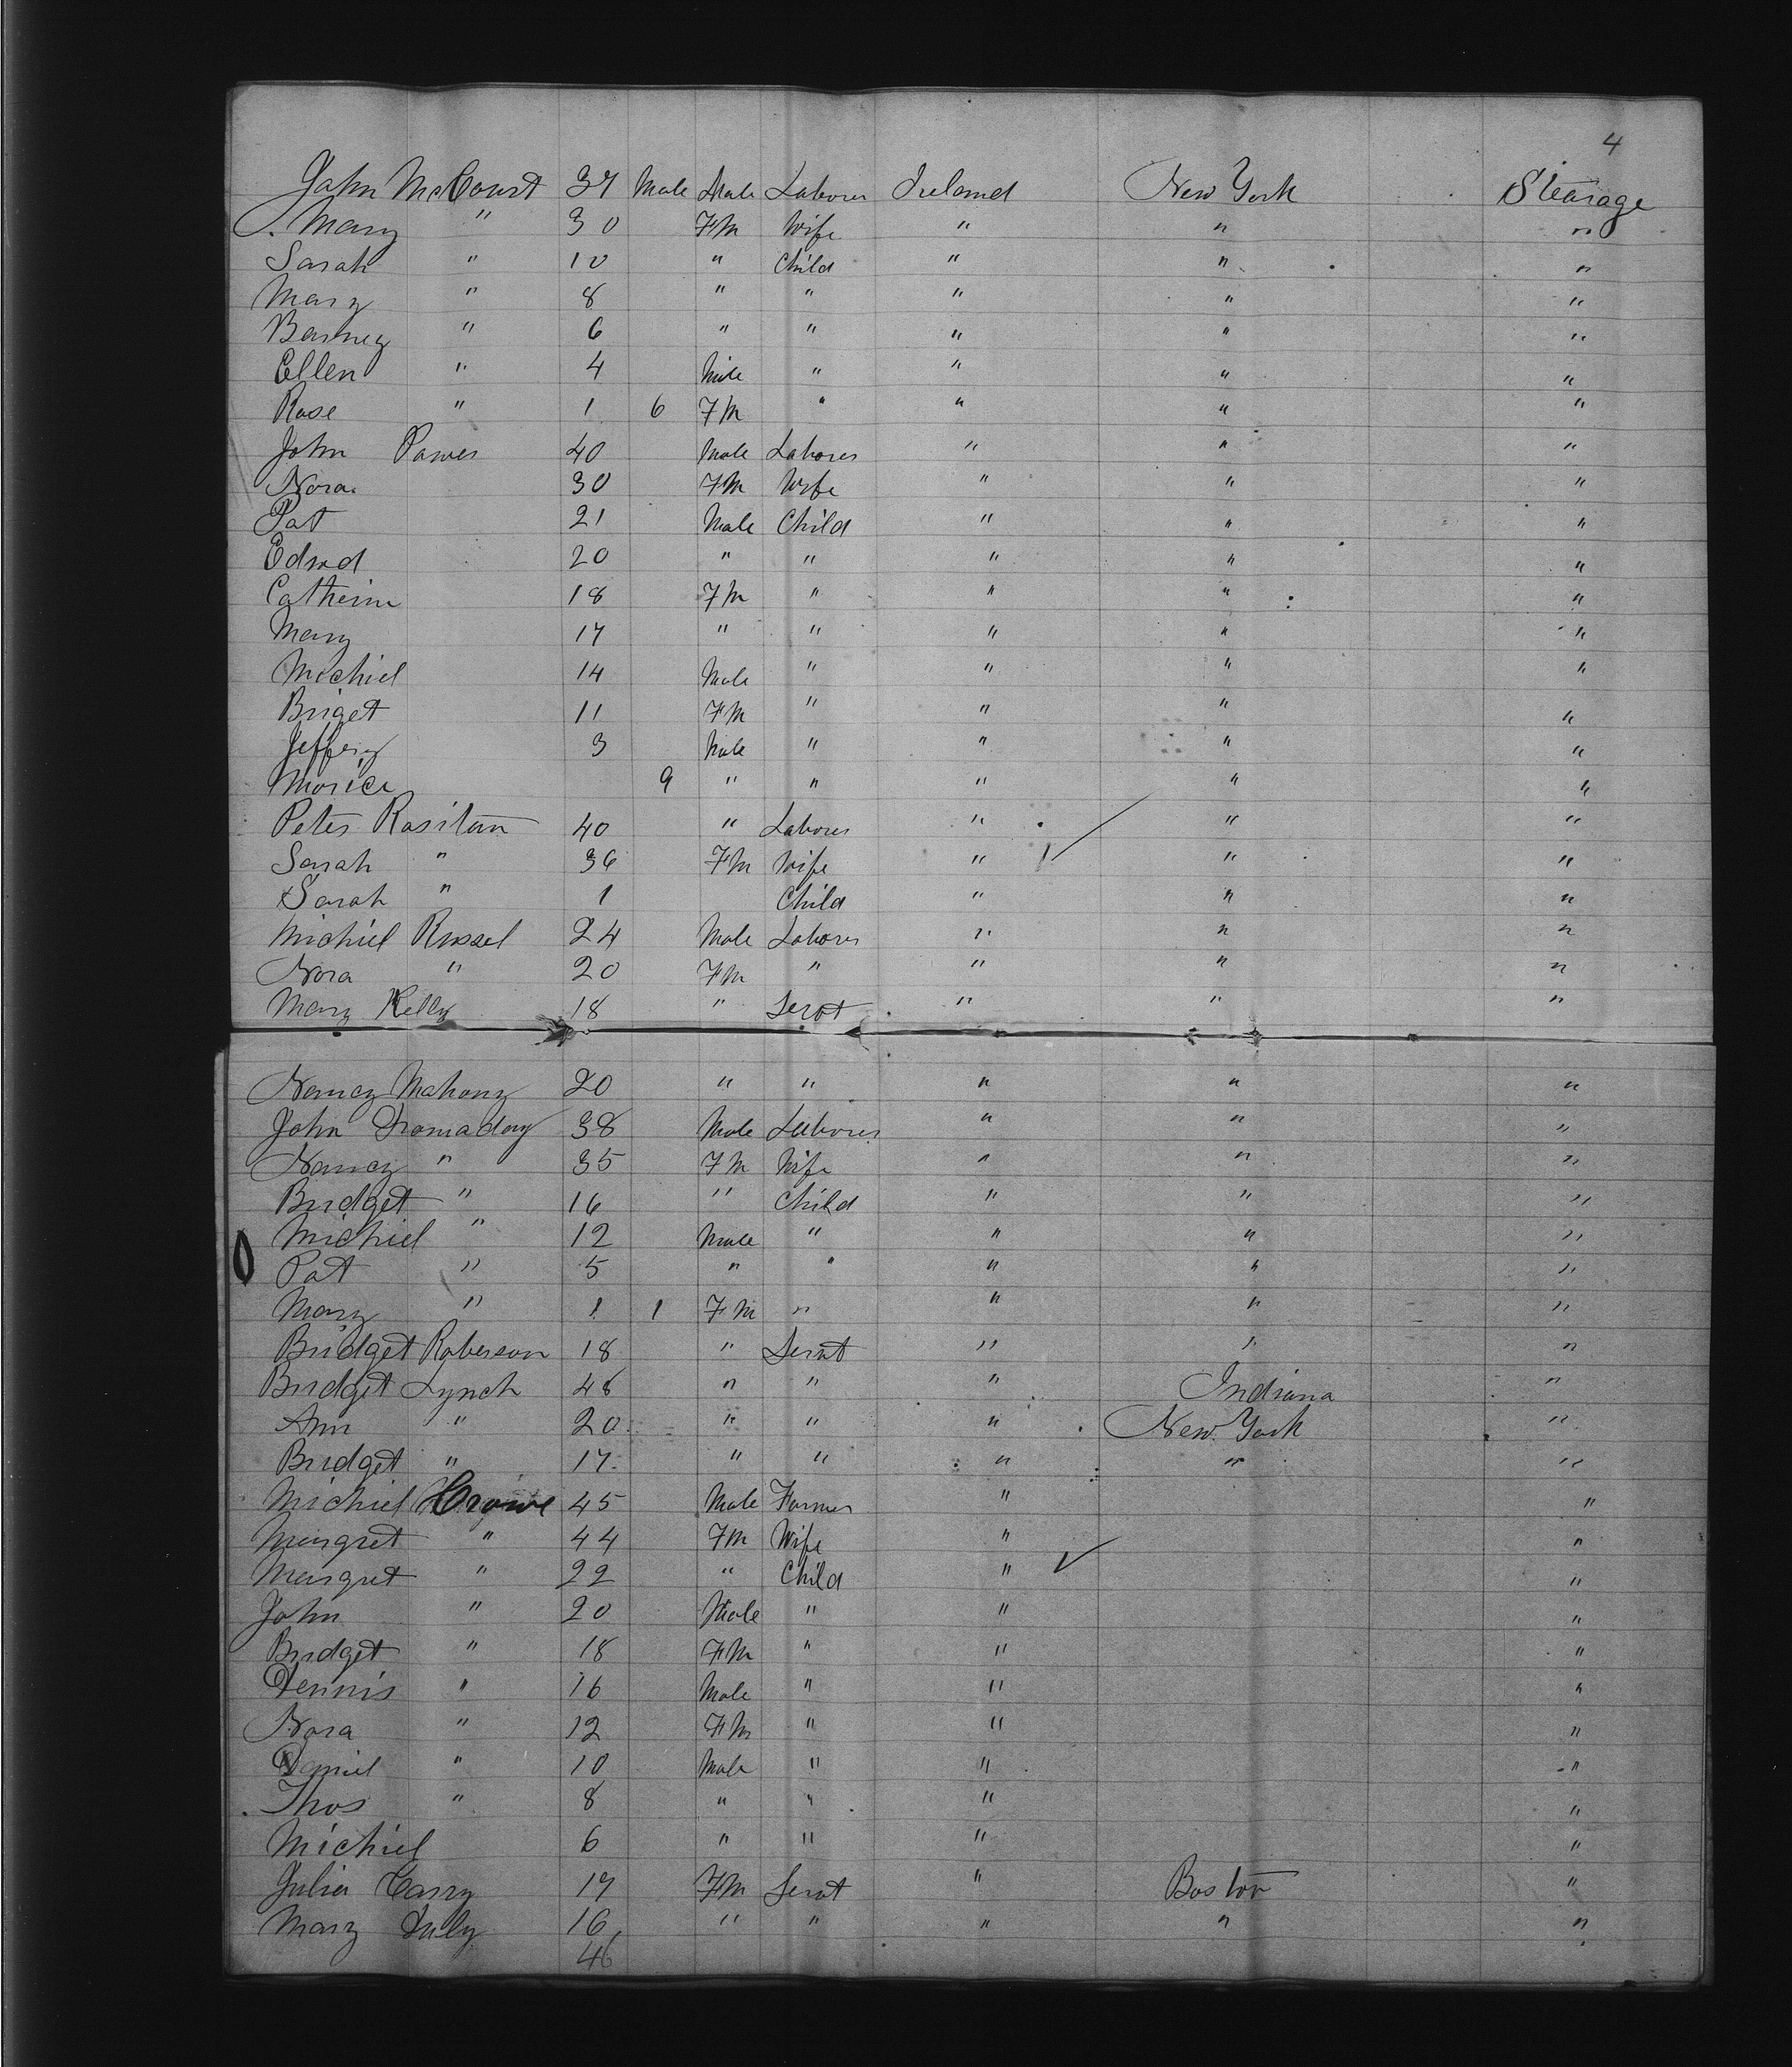 4
John McCourt 37 Male Male Laborer Ireland New York Stearage
Mary " 30 FM Wife " " "
Sarah " 10 " Child " " "
Mary " 8 " " " " "
Barney " 6 " " " " "
Ellen " 4 Male " " " "
Rose " 1 6 FM " " " "
John Power 40 Male Laborer " " "
Nora 30 FM Wife " " "
Pat 21 Male Child " " "
Edwd 20 " " " " "
Catherin 18 FM " " " "
Mary 17 " " " " "
Michiel 14 Male " " " "
Briget 11 FM " " " "
Jeffery 3 Male " " " "
Morice 9 " " " " "
Peter 40 " Laborer " " "
Sarah " 36 FM Wife " " "
Sarah " 1 Child " " "
Michiel Russel 24 Male Laborer " " "
Nora " 20 FM " " " "
Mary Kelly 18 " Servt " " "
Nancy Mahony 20 " " " " "
John Dromaday 38 Male Laborer " " "
Nancy " 35 FM Wife " " "
Bridget " 16 " Child " " "
Michiel " 12 Male " " " "
Pat " 5 " " " " "
Mary " 1 1 FM " " " "
Bridget Roberson 18 " Servt " " "
Bridget Lynch 48 " " " Indiana "
Ann " 20 " " " New York "
Bridget " 17 " " " " "
Michiel Crowe 45 Male Farmer " "
Margret " 44 FM Wife " "
Margret " 22 " Child " "
John " 20 Male " " "
Bridget " 18 FM " " "
Dennis " 16 Male " " "
Nora " 12 FM " " "
Daniel " 10 Male " " "
Thos " 8 " " " "
Michiel 6 " " " "
Julia Carry 17 FM Servt " Boston "
Mary Duly 16 " " " " "
46